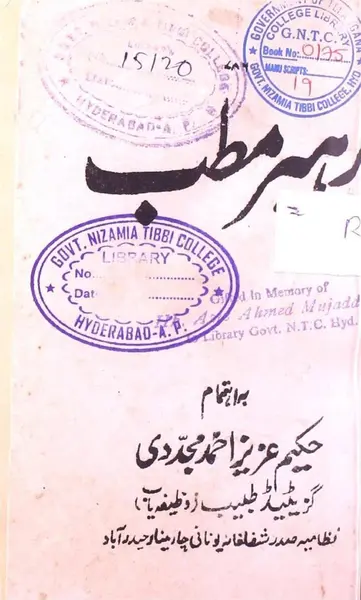 GOVERNMENT OF
COLLEGE LIBRARY
G.N.T.C.
Book No: 0175
MANU SCRIPTS:
19
GOVT. NIZAMIA TIBBI COLLEGE, HY
TIBBI COLLEGE
15120
HYDERABAD-A. P.
۷۸۶
رہبر مطب
R
GOVT. NIZAMIA TIBBI COLLEGE
LIBRARY
No.
Dat
HYDERABAD-A. P.
Gifted In Memory of
Ahmed Mujadd
Library Govt. N.T.C. Hyd.
بہ اہتمام
حکیم عزیز احمد مجددی
گزیٹیڈ طبیب (وظیفہ یاب)
نظامیہ صدر شفاخانہ یونانی چارمینار حیدرآباد